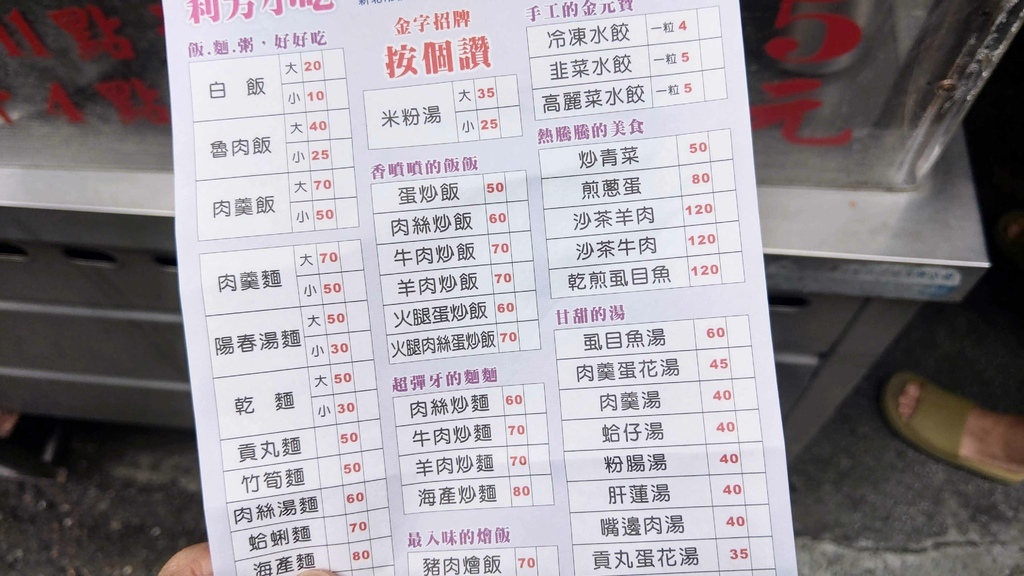 利芳小吃
飯.麵.粥、好好吃
白飯 大 20
小 10
魯肉飯 大 40
小 25
肉羹飯 大 70
小 50
肉羹麵 大 70
小 50
陽春湯麵 大 50
小 30
乾麵 大 50
小 30
貢丸麵 50
竹筍麵 50
肉絲湯麵 60
蛤蜊麵 70
海產麵 80
金字招牌
按個讚
米粉湯 大 35
小 25
香噴噴的飯飯
蛋炒飯 50
肉絲炒飯 60
牛肉炒飯 70
羊肉炒飯 70
火腿蛋炒飯 60
火腿肉絲蛋炒飯 70
超彈牙的麵麵
肉絲炒麵 60
牛肉炒麵 70
羊肉炒麵 70
海產炒麵 80
最入味的燴飯
豬肉燴飯 70
手工的金元寶
冷凍水餃 一粒 4
韭菜水餃 一粒 5
高麗菜水餃 一粒 5
熱騰騰的美食
炒青菜 50
煎蔥蛋 80
沙茶羊肉 120
沙茶牛肉 120
乾煎虱目魚 120
甘甜的湯
虱目魚湯 60
肉羹蛋花湯 45
肉羹湯 40
蛤仔湯 40
粉腸湯 40
肝蓮湯 40
嘴邊肉湯 40
貢丸蛋花湯 35
5
元